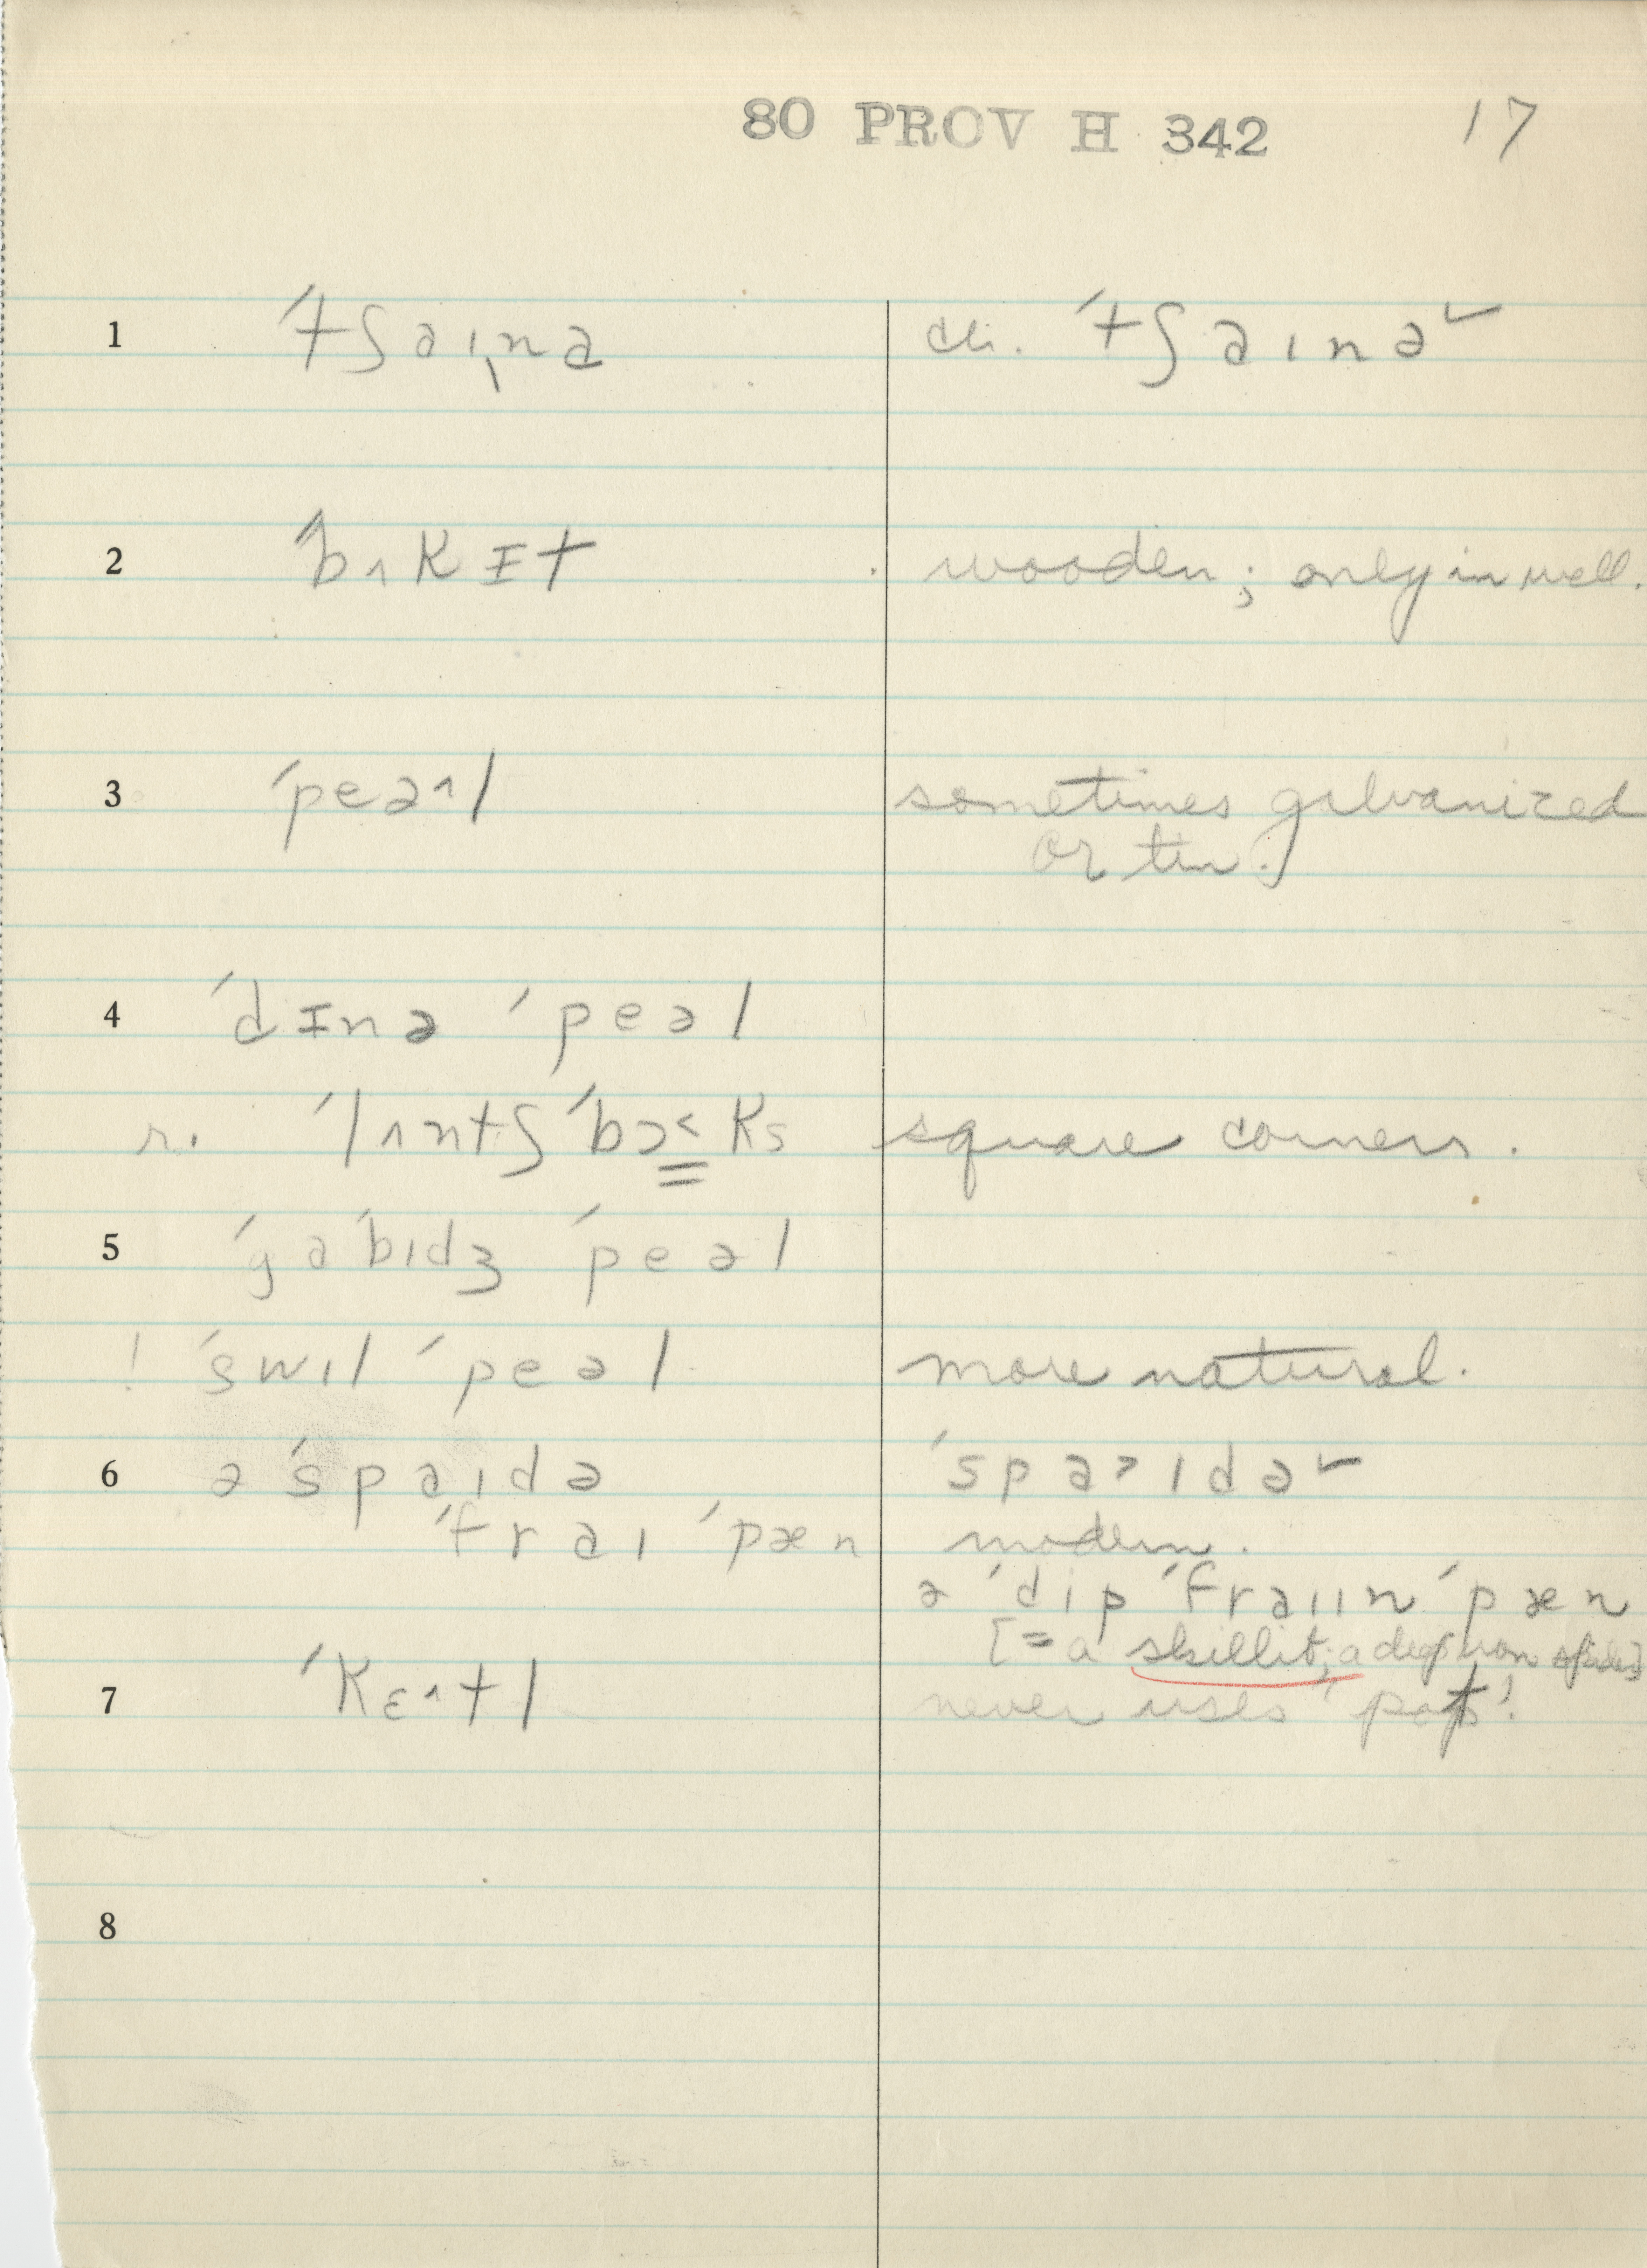 80 PROV H 342 17
1 ˈtʃaɪ̨nə cli. ˈtʃaɪnə˅
2 ˈbʌkɪt wooden; only in well.
3 ˈpeə^l sometimes galvanized
or tin.
4 ˈdɪnə ˈpeəl
r. ˈlʌntʃ ˈbɔ˂ks square corners.
5 ˈgaˈbɪdʒ ˈpeəl
! ˈswɪl ˈpeəl more natural.
6 ə ˈspaɪdə ˈspa˃ɪdə˅
ˈfraɪ ˈpæn modern.
ə ˈdip ˈfraɪɪn ˈpæn
[= a skillit; a deep iron spider]
7 ˈkɛ^tl never uses 'pot'!
8